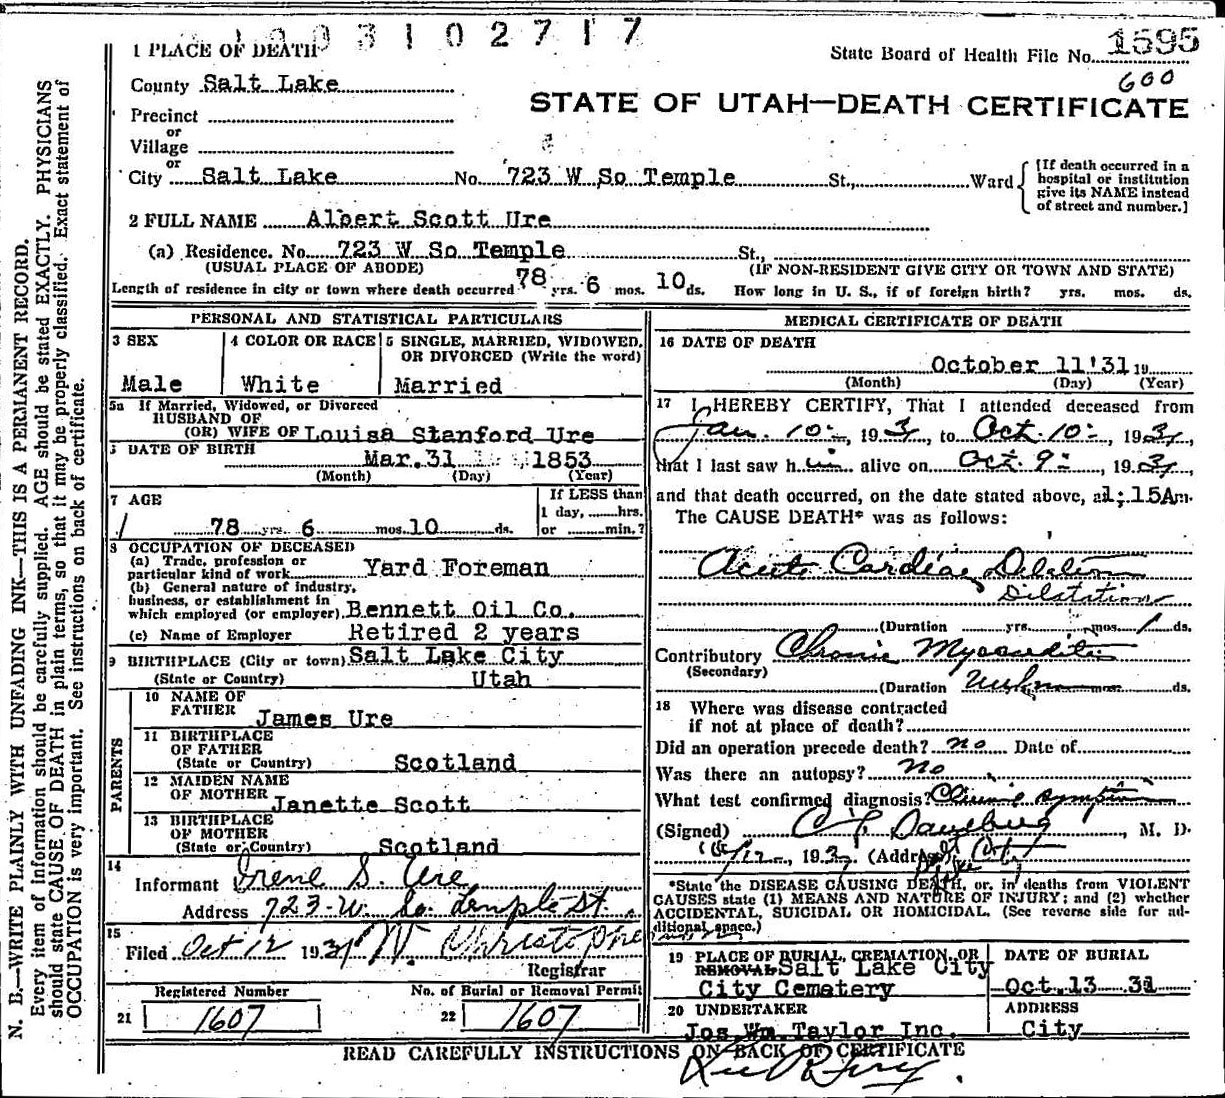 9 3 1 0 2 7 1 7
1 PLACE OF DEATH
State Board of Health File No. 1595
600
County Salt Lake
STATE OF UTAH—DEATH CERTIFICATE
Precinct
or
Village
or
City Salt Lake No. 723 W So Temple St., Ward
[If death occurred in a
hospital or institution
give its NAME instead
of street and number.]
2 FULL NAME Albert Scott Ure
(a) Residence. No. 723 W So Temple St.,
(USUAL PLACE OF ABODE) (IF NON-RESIDENT GIVE CITY OR TOWN AND STATE)
Length of residence in city or town where death occurred 78 yrs. 6 mos. 10 ds. How long in U. S., if of foreign birth? yrs. mos. ds.
N. B.—WRITE PLAINLY WITH UNFADING INK—THIS IS A PERMANENT RECORD.
Every item of information should be carefully supplied. AGE should be stated EXACTLY. PHYSICIANS
should state CAUSE OF DEATH in plain terms, so that it may be properly classified. Exact statement of
OCCUPATION is very important. See instructions on back of certificate.
PERSONAL AND STATISTICAL PARTICULARS
3 SEX 4 COLOR OR RACE 5 SINGLE, MARRIED, WIDOWED,
OR DIVORCED (Write the word)
Male White Married
5a If Married, Widowed, or Divorced
HUSBAND OF
(OR) WIFE OF Louisa Stanford Ure
DATE OF BIRTH Mar. 31 1853
(Month) (Day) (Year)
7 AGE If LESS than
1 day, hrs.
78 yrs. 6 mos. 10 ds. or min.?
8 OCCUPATION OF DECEASED
(a) Trade, profession or
particular kind of work Yard Foreman
(b) General nature of industry,
business, or establishment in
which employed (or employer) Bennett Oil Co.
(c) Name of Employer Retired 2 years
9 BIRTHPLACE (City or town) Salt Lake City
(State or Country) Utah
PARENTS
10 NAME OF
FATHER James Ure
11 BIRTHPLACE
OF FATHER
(State or Country) Scotland
12 MAIDEN NAME
OF MOTHER Janette Scott
13 BIRTHPLACE
OF MOTHER
(State or Country) Scotland
14
Informant Irene S. Ure
Address 723-W. So. Temple St.
15
Filed Oct 12 1931 W. Christophe
Registrar
Registered Number No. of Burial or Removal Permit
21 1607 22 1607
MEDICAL CERTIFICATE OF DEATH
16 DATE OF DEATH
October 11'31 19
(Month) (Day) (Year)
17 I HEREBY CERTIFY, That I attended deceased from
Jan. 10, 1931, to Oct. 10, 1931,
that I last saw him alive on Oct. 9, 1931,
and that death occurred, on the date stated above, at 1;15Am.
The CAUSE DEATH* was as follows:
Acute Cardiac Dilation
Dilatation
(Duration yrs. mos. 1 ds.
Contributory Chronic Myocarditis
(Secondary)
(Duration Unkn mos. ds.
18 Where was disease contracted
if not at place of death?
Did an operation precede death? no Date of
Was there an autopsy? no
What test confirmed diagnosis? Clinic symptom
(Signed) , M. D.
12, 1931 (Address) City
*State the DISEASE CAUSING DEATH, or, in deaths from VIOLENT
CAUSES state (1) MEANS AND NATURE OF INJURY; and (2) whether
ACCIDENTAL, SUICIDAL OR HOMICIDAL. (See reverse side for ad-
ditional space.)
19 PLACE OF BURIAL, CREMATION, OR DATE OF BURIAL
REMOVAL Salt Lake City
City Cemetery Oct. 13 31
20 UNDERTAKER ADDRESS
Jos Wm. Taylor Inc. City
READ CAREFULLY INSTRUCTIONS ON BACK OF CERTIFICATE